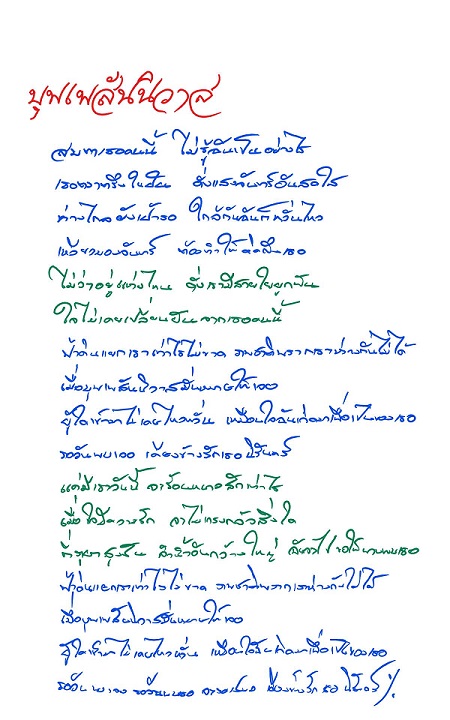 บุพเพสันนิวาส
สบตาเธอคนนี้ ไม่รู้ฉันเป็นอย่างไร
เธอตราตรึงในใจ ดั่งแสงจันทร์อันสดใส
ห่างไกลยังเฝ้ารอ ใกล้กันฉันก็หวั่นไหว
ของจันทร์ ทำให้คิดถึงเธอ
ไม่ว่าอยู่แห่งไหน ดั่งเรามีสายใยผูกพัน
ใจไม่เคยเปลี่ยนผัน จากเธอคนนี้
ฟ้าดินแยกเราเท่าไรไม่ขาด ภพชาติพรากเราห่างกันไม่ได้
เมื่อบุพเพสันนิวาสมั่นหมายให้เจอ
ผู้ใดเข้ามาไม่เคยไหวหวั่น เหมือนใจฉันเกิดมาเพื่อเป็นของเธอ
รอวันพบเจอ เคียงข้างรักเธอนิรันดร์
แค่มีเราวันนี้ จะร้อนหนาวสักเท่าไร
เมื่อใจมีความรัก จะไม่เกรงกลัวสิ่งใด
ที่ขุนเขาสูงชัน กว้างใหญ่ เธอ
ฟ้าดินแยกเราเท่าไรไม่ขาด ภพชาติพรากเราห่างกันไม่ได้
เมื่อบุพเพสันนิวาสมั่นหมายให้เจอ
ผู้ใดเข้ามาไม่เคยไหวหวั่น เหมือนใจฉันเกิดมาเพื่อเป็นของเธอ
รอวันพบเจอ รอวันพบเธอ เคียงข้างรักเธอนิรันดร์